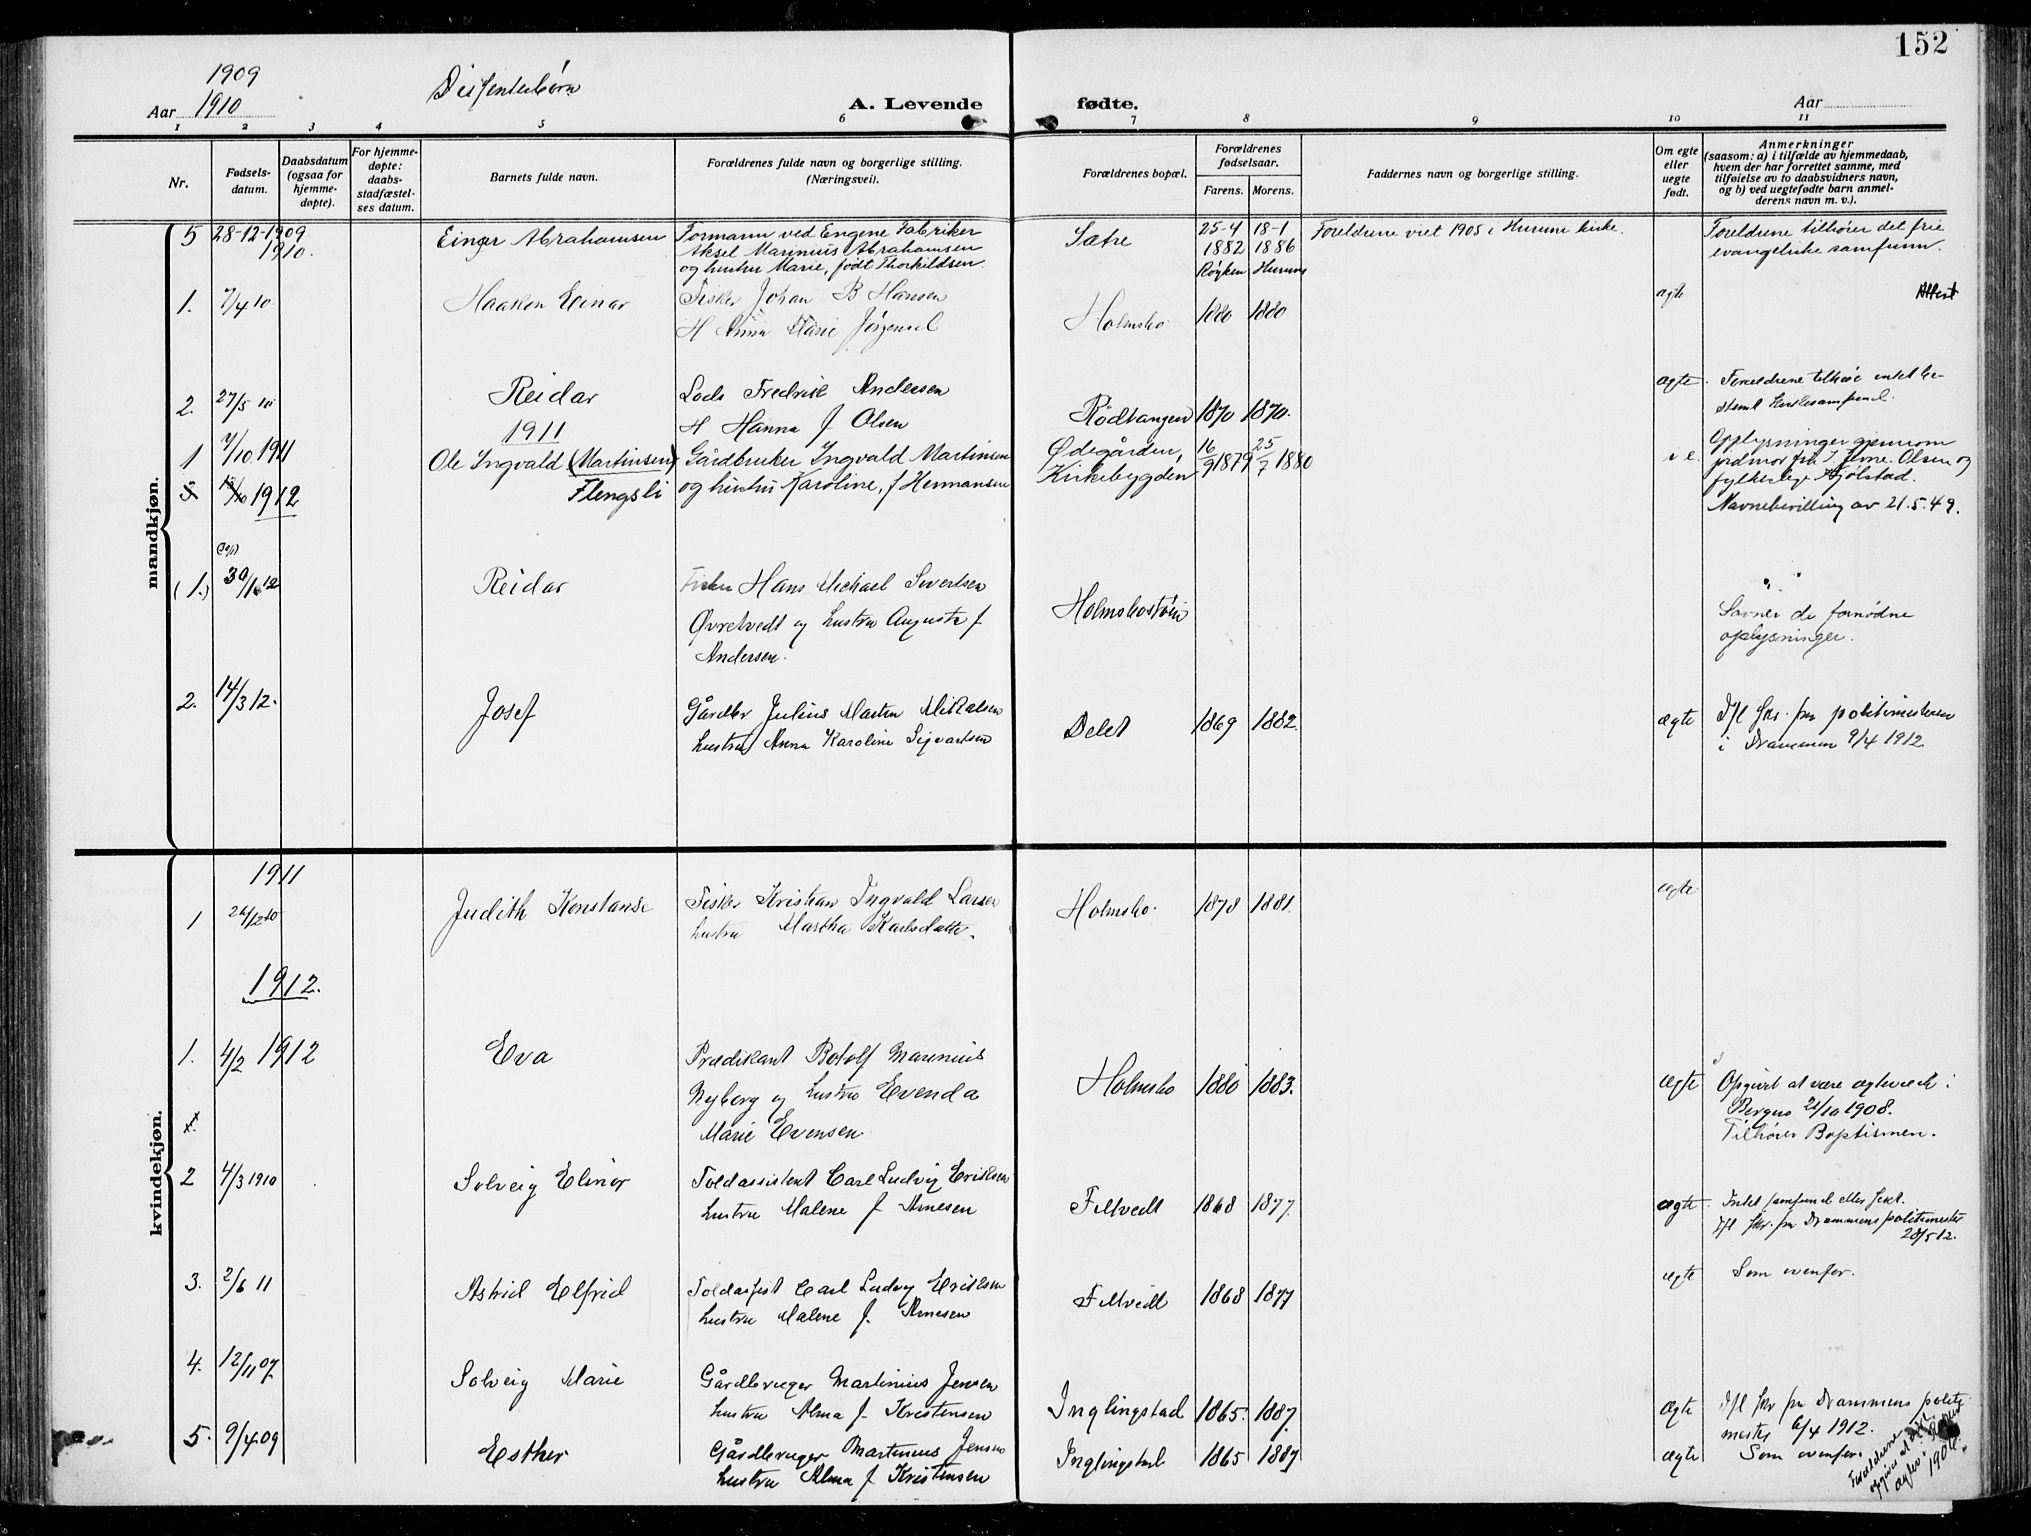 152
1909
Aar 1910
Dissenterbørn
A. Levende fødte.
Aar
1 2 3 4 5 6 7 8 9 10 11
Nr.
Fødsels-
datum.
Daabsdatum
(ogsaa for
hjemme-
døpte).
For hjemme-
døpte:
daabs-
stadfæstel-
ses datum.
Barnets fulde navn.
Forældrenes fulde navn og borgerlige stilling.
(Næringsvei).
Forældrenes bopæl.
Forældrenes
fødselsaar.
Farens. Morens.
Faddernes navn og borgerlige stilling.
Om egte
eller
uegte
født.
Anmerkninger
(saasom: a) i tilfælde av hjemmedaab,
hvem der har forrettet samme, med
tilføielse av to daabsvidners navn,
og b) ved uegtefødte barn anmel-
derens navn m. v.).
mandkjøn.
5 28-12-1909 Einar Abrahamsen Formann ved Engene Fabriker Sætre 25-4 18-1 Foreldrene viet 1905 i Hurum kirke. Foreldrene tilhører det frie
1910. Aksel Marinius Abrahamsen 1882 1886 evangeliske samfunn.
og hustru Marie, født Thorkildsen. Røyken Hurum
1. 7/4 10 Haakon Einar Fisker Johan B Hansen Holmsbo 1880 1880 ægte Attest
H Anna Marie Jørgensd
2. 27/5 10 Reidar Lods Fredrik Andersen Rødtangen 1870 1870. ægte. Forældrene tilhør intet be-
H Hanna f Olsen stemt kirkesamfund.
1911
1 7/10 1911 Ole Ingvald (Martinsen) Gårdbruker Ingvald Martinsen Ødegården, 16/9 1879 25/7 1880 i e. Opplysninger gjennom
Flengsli og hustru Karoline, f Hermansen Kirkebygden jordmor fru J. Jerne. Olsen og
1912 fylkeslege Hjølstad.
Navnebevilling av 21.5.49.
(1.) 30/1 12 Reidar Fisker Hans Michael Sivertsen Holmsbostøen
Øvretvedt og hustru Augusta f Savner de fornødne
Andersen. oplysninger.
2. 14/3 12. Josef Gårdbr Julius Martin Mikalsen Delet 1869 1882. ægte Ifl skr. fra politimesteren
hustru Anna Karoline Sigvartsen i Drammen 9/4 1912
kvindekjøn.
1911
1 26/12 10 Judith Konstanse Fisker Kristian Ingvald Larsen Holmsbo. 1878 1881. ægte
hustru Martha Karlsdatter.
1912.
1. 4/2 1912 Eva Prædikant Botolf Marenius Holmsbo 1880 1883. ægte Opgivet at være ægteviet i
Nyborg og hustru Evenda Bergen 21/10 1908.
Marie Evensen. Tilhører Baptismen.
2 4/3 1910 Solveig Elinor Toldassistent Carl Ludvig Eriksen Filtvedt 1868 1877. ægte Intet samfund eller sekt.
hustru Malene f Arnesen Ifl skr. fra Drammens politimester
28/5 12.
3. 2/6 11 Astrid Elfrid Toldassist Carl Ludvig Eriksen Filtvedt 1868 1877 ægte Som ovenfor.
hustru Malene f. Arnesen
4. 12/11 07. Solveig Marie Gårdbruger Martinius Jensen Inglingstad 1865. 1887. ægte Ifl skr fra Drammens politi-
hustru Alma f. Kristensen mester 6/4 1912.
5. 9/4 09 Esther Gårdbruger Martinius Jensen Inglingstad 1865 1887 ægte Som ovenfor.
hustru Alma f Kristensen
Forældrene
1906.